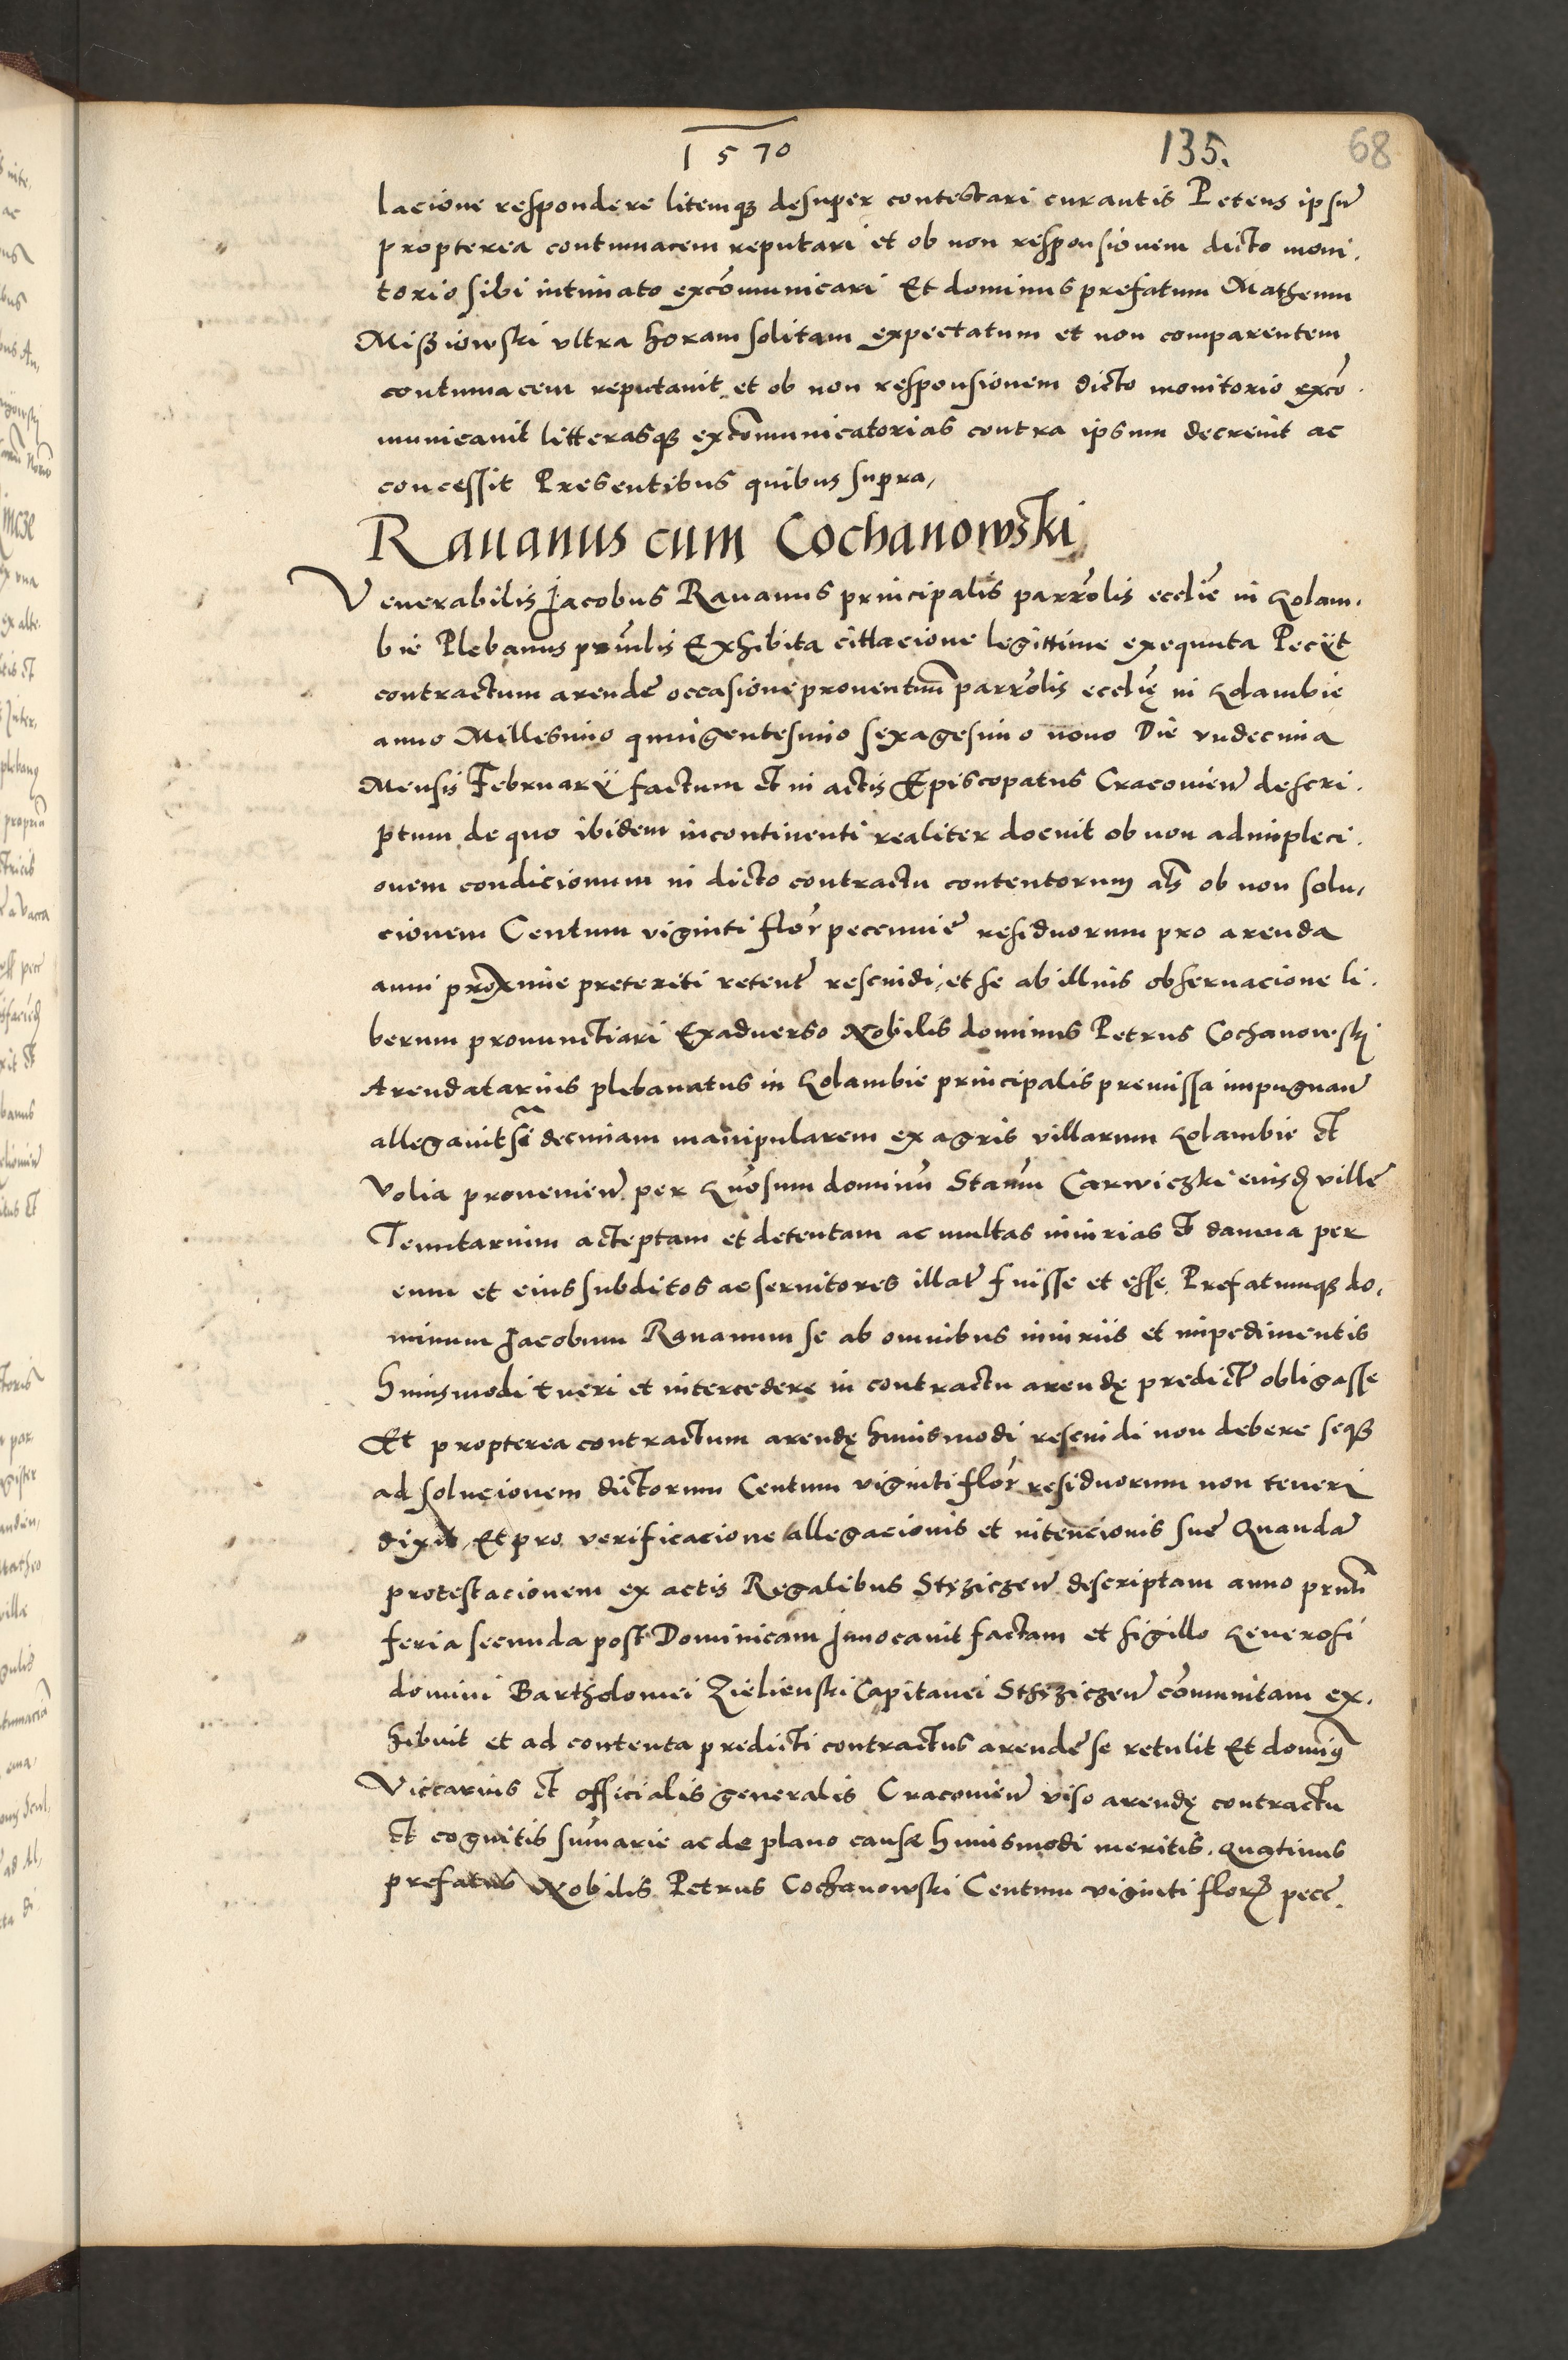 1570
135.
68
lacione respondere litemqȝ desuper contestari curantis Petens ipsu̅
propterea contumacem reputari et ob non responsionem dicto moni.
torio sibi intimato exco̅municari Et dominus prefatum Matheum
Missiowski vltra horam solitam expectatum et non comparentem
contumacem reputauit et ob non responsionem dicto monitorio exco̅.
municauit litterasqȝ exco̅municatorias contra ipsum decreuit ac
concessit Presentibus quibus supra,
Rauanus cum Cochanowski
Venerabilis Jacobus Rauanus principalis parro̅lis eccl̅ie in Golam.
bie Plebanus Exhibita cittacione legittime exequuta Peciit
contractum arende occasione prouentuu̅ parro̅lis eccl̅ię in Golambie
anno Millesimo quingentesimo sexagesimo nono Die vndecima
Mensis Februarij factum et in actis Episcopatus Cracouien̅ descri.
ptum de quo ibidem incontinenti realiter docuit ob non adimpleci.
onem condicionum in dicto contractu contentorum ob non solu,
cionem Centum viginti flor̅ pecunnie residuorum pro arenda
anni proxime preteriti retent̅ rescindi, et se ab illius obseruacione li.
berum pronunctiari Exaduerso Nobilis dominus Petrus Cochanowski
Arendatarius plebanatus in Golambie principalis premissa impugnan̅
allegauit decimam manipularem ex agris villarum Golambie et
Volia prouenien̅ per G̅n̅osum dominu̅ Sta̅um Carwiczki eiusd̅ ville
Tenutarium acceptam et detentam ac multas iniurias et damna per
eum et eius subditos ac seruitores illat̅ fuisse et esse Prefatumqȝ do,
minum Jacobum Rauanum se ab omnibus iniuriis et impedimentis
huiusmodi tueri et intercedere in contractu arendę predict̅ obligasse
Et propterea contractum arendę huiusmodi rescindi non debere seqȝ
ad solucionem dictorum Centum viginti flor̅ residuorum non teneri
dixit, Et pro verificacione allegacionis et intencionis sue Quanda̅
protestacionem ex actis Regalibus Stęziczen̅ descriptam anno pr̅nti
feria secunda post Dominicam Inuocauit factam et sigillo Generosi
domini Bartholomei Zielienski Capitanei Sthęziczen̅ co̅munitam ex.
hibuit et ad contenta predicti contractus arende se retulit Et domin9
Viccarius et officialis generalis Cracouien̅ viso arendę contractu
et cognitis sum̅arie ac de plano causæ huiusmodi meritis. Quatinus
prefatus Nobilis Petrus Cochanowski Centum viginti flor̅ pecc̅.